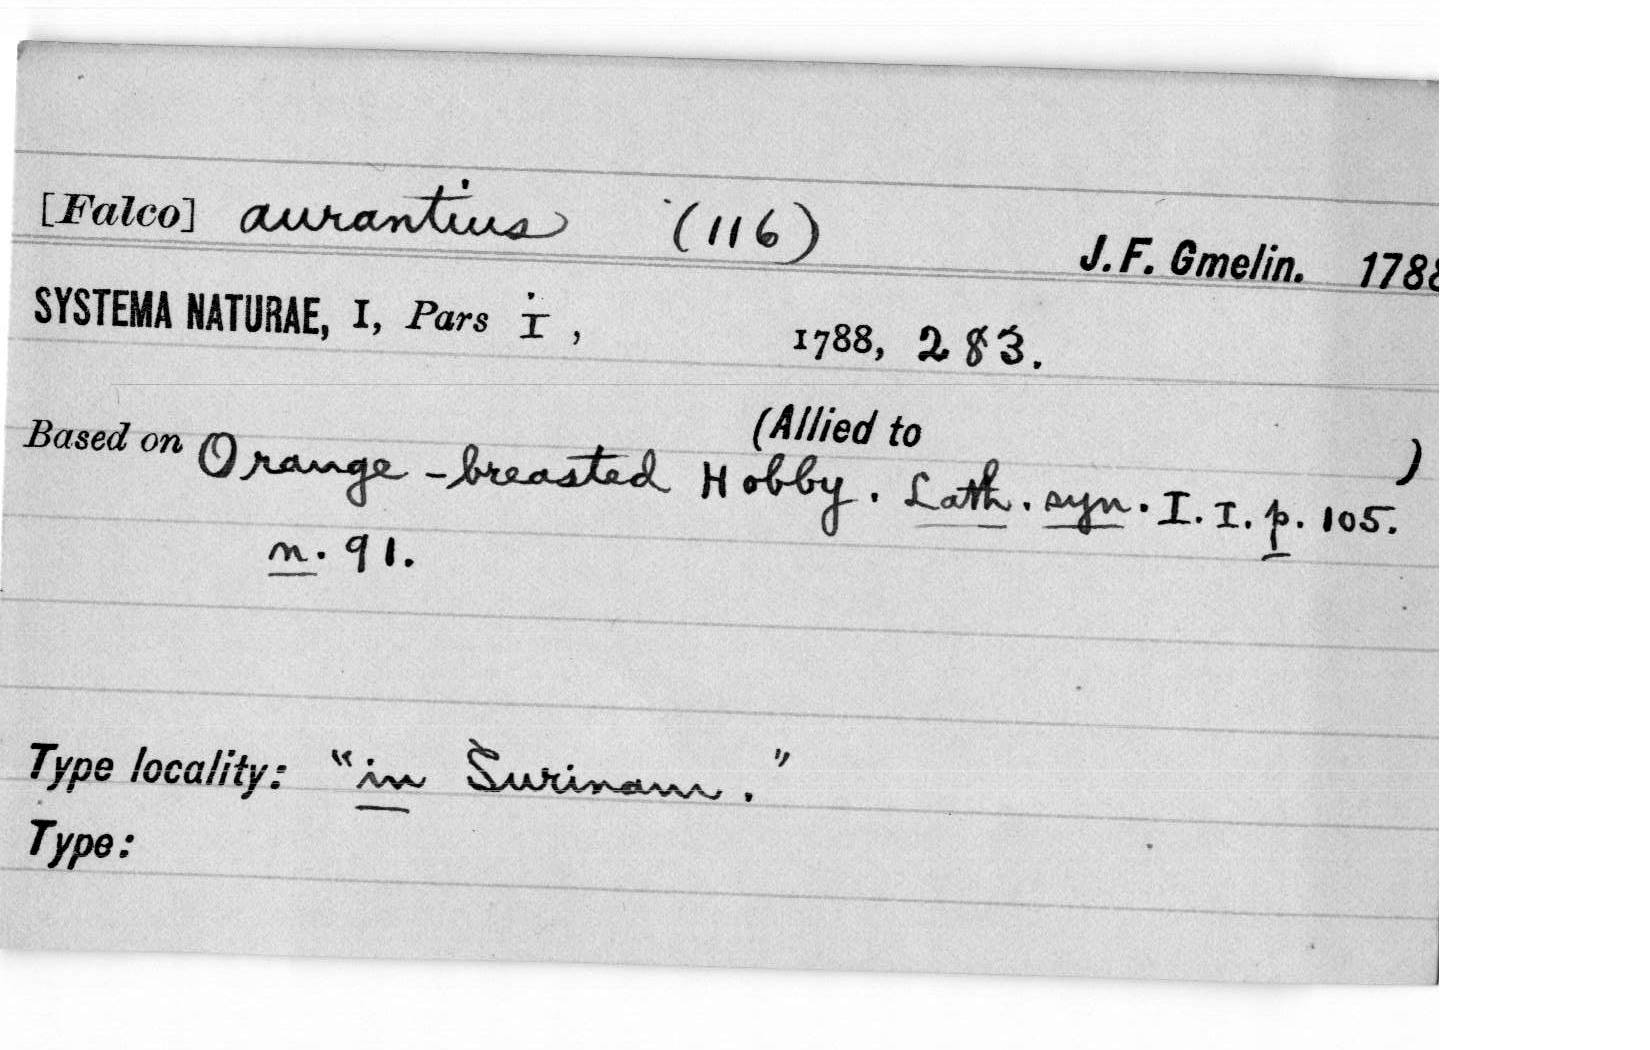 [Falco] aurantius (116)
J. F. Gmelin. 1788
SYSTEMA NATURAE, I, Pars I, 1788, 283.
(Allied to )
Based on Orange-breasted Hobby. Lath. syn. I. I. p. 105.
n. 91.
Type locality: "in Surinam."
Type: